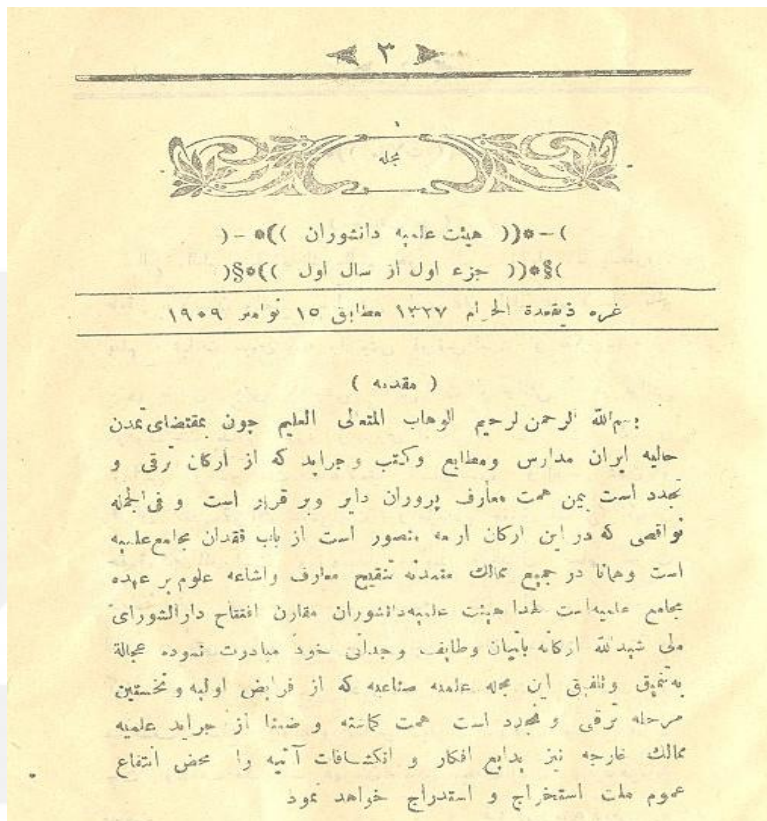 ۳
مجله
)-*(( هیئت علمیه دانشوران ))*-(
)§*(( جزء اول از سال اول ))*§(
غره ذیقعدة الحرام ۱۳۲۷ مطابق ۱۵ نوامبر ۱۹۰۹
( مقدمه )
بسم‌الله الرحمن لرحیم الوهاب المتعالی العلیم چون بمقتضای تمدن
حالیه ایران مدارس ومطابع وکتب وجراید که از ارکان ترقی و
تجدد است بیمن همت معارف پروران دایر وبر قرار است و فی‌الجمله
نواقصی که در این ارکان اربعه متصور است از باب فقدان مجامع علمیه
است وهمانا در جمیع ممالک متمدنه تنقیح معارف واشاعه علوم بر عهده
مجامع علمیه‌است لهذا هیئت علمیه‌دانشوران مقارن افتتاح دارالشورای
ملی شیدلله ارکانه باتیان وظایف وجدانی خود مبادرت نموده عجالة
به‌تنمیق وتلفیق این مجله علمیه صناعیه که از فرایض اولیه و نخستین
مرحله ترقی و تجدد است همت گماشته و ضمنا از جراید علمیه
ممالک خارجه نیز بدایع افکار و انکشافات آتیه را محض انتفاع
عموم ملت استخراج و استدراج خواهد نمود